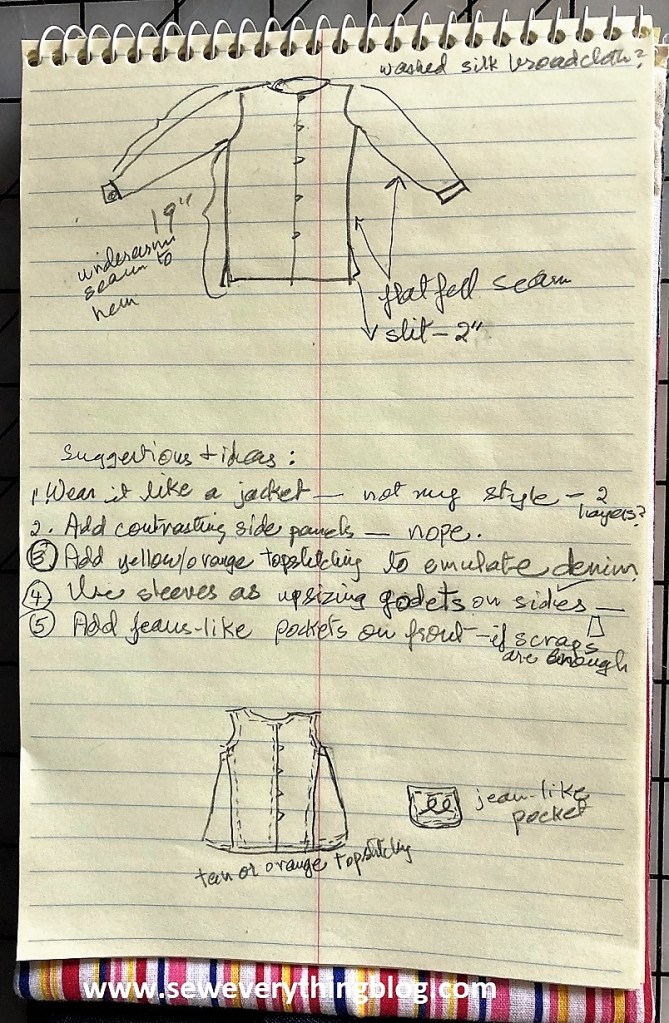 washed silk broadcloth?
19"
underarm
seam to
hem
flat fell seam
slit - 2"
Suggestions + ideas:
1. Wear it like a jacket — not my style - 2
layers?
2. Add contrasting side panels — nope.
3 Add yellow/orange topstitching to emulate denim
4 Use sleeves as upsizing godets on sides —
5 Add jeans-like pockets on front - if scraps
are enough
jean-like
pocket
tan or orange topstitching
www.seweverythingblog.com